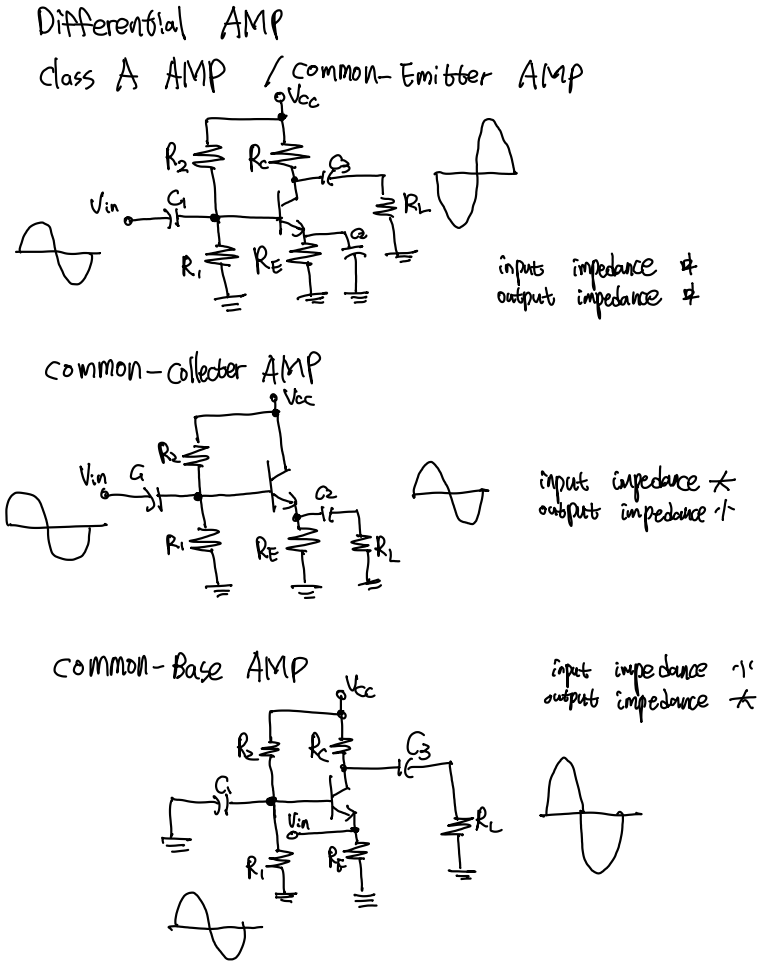 Differential AMP
class A AMP / Common-Emitter AMP
Vcc
R2
Rc
C3
Vin
C1
RL
R1
RE
C2
input impedance 中
output impedance 中
Common-Collecter AMP
Vcc
R2
Vin
C1
C2
R1
RE
RL
input impedance 大
output impedance 小
Common-Base AMP
input impedance 小
output impedance 大
Vcc
R2
Rc
C3
C1
Vin
RL
R1
RE